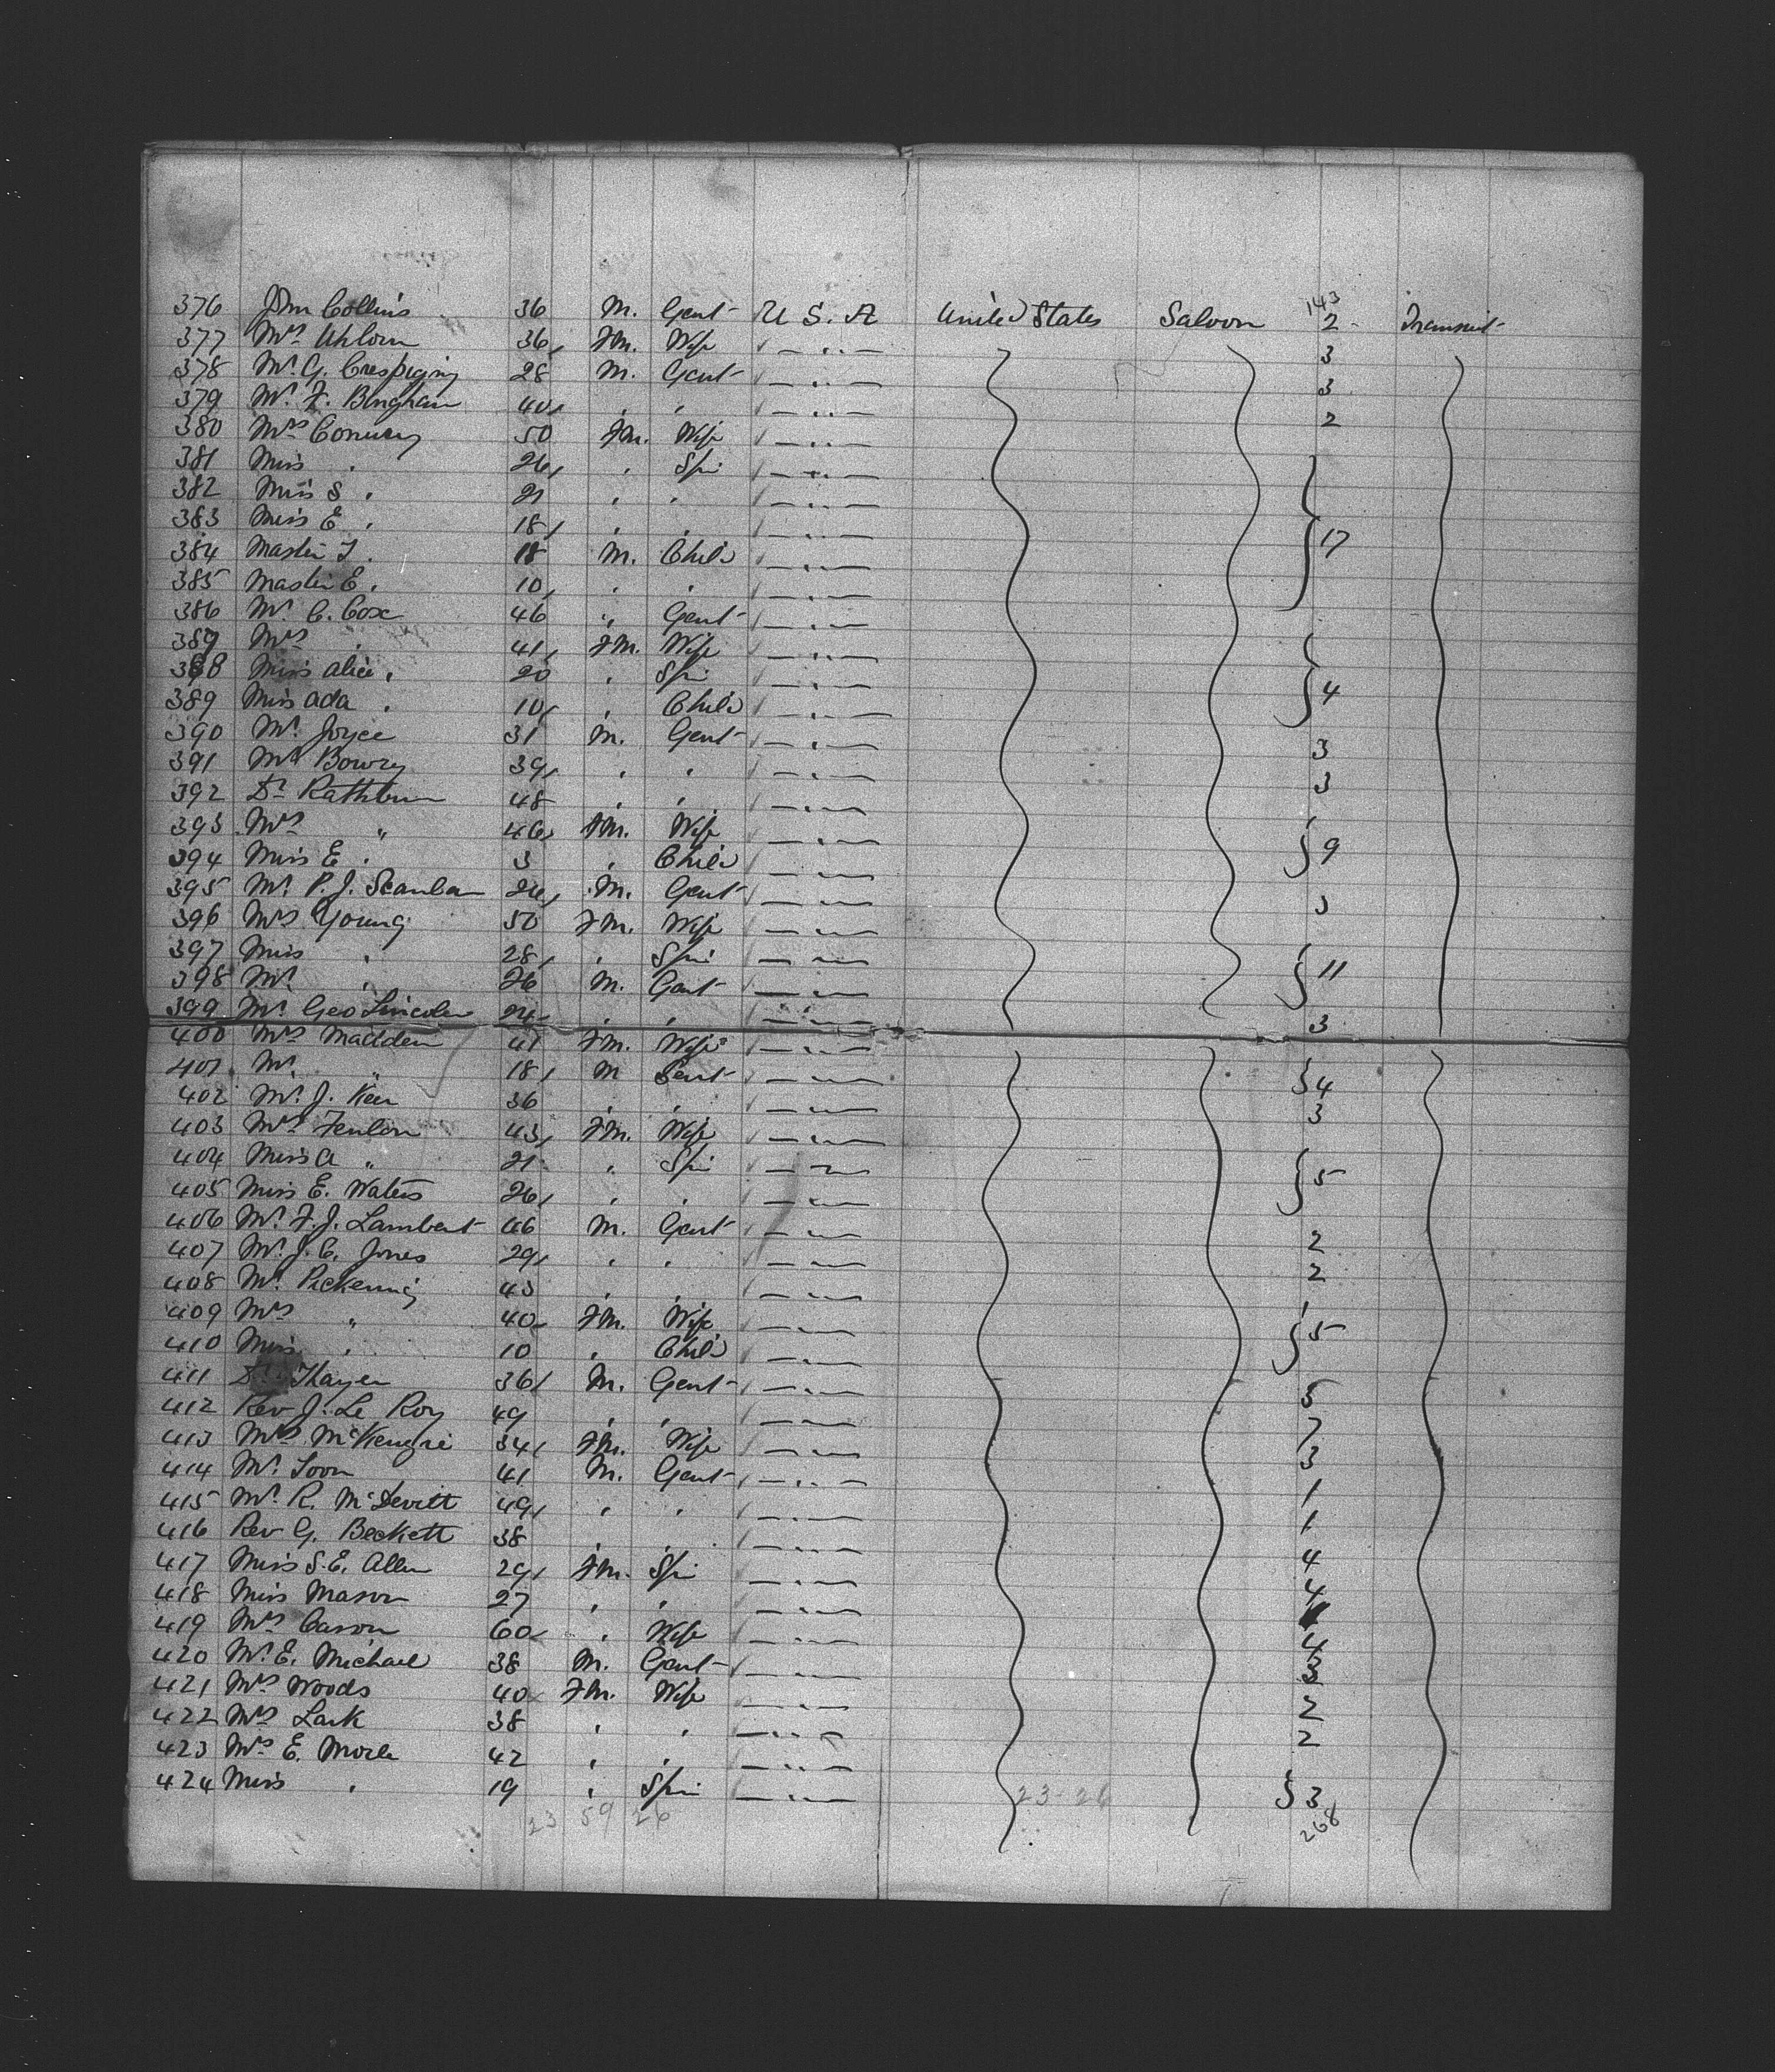 143
376 Jno Collins 36 M. Gent U. S. A United States Saloon 2 Transit
377 Mrs Uhlom 36 Fm. Wife 3
378 Mr. G. Crespigny 28 M. Gent 3
379 Mr. F. Bingham 40 " " 2
380 Mrs Conway 50 Fm. Wife
381 Miss " 26 " Spi
382 Miss S " 21 " "
383 Miss E " 18 " " 17
384 Master J " 18 M. Child
385 Master E. " 10 " "
386 Mr. C. Cox 46 " Gent
389 Mrs " 41 Fm. Wife
388 Miss Alice " 20 " Spi
389 Miss Ada " 10 " Child 4
390 Mr. Joyce 31 M. Gent 3
391 Mr Bowry 39 " " 3
392 Dr Rathbun 48 " "
393 Mrs " 46 Fm. Wife
394 Miss E " 3 " Child 9
395 Mr. P. J. Scanlan 26 M. Gent 3
396 Mrs Young 50 Fm. Wife
397 Miss " 28 " Spi
398 Mr. " 26 M. Gent 11
399 Mr. Geo Lincoln 24 " " 3
400 Mrs Madden 41 Fm. Wife
401 Mr. " 18 M Gent 4
402 Mr. J. Kerr 36 " " 3
403 Mrs Fenlon 43 Fm. Wife
404 Miss A " 21 " Spi 5
405 Miss E. Waters 26 " "
406 Mr. F. J. Lambert 46 M. Gent 2
407 Mr. J. C. Jones 29 " " 2
408 Mr. Pickering 43 " "
409 Mrs " 40 Fm. Wife 5
410 Miss " 10 " Child
411 Dr Thayer 36 M. Gent 5
412 Rev J. Le Roy 49 " " 7
413 Mrs McKenzie 34 Fm. Wife 3
414 Mr. Soon 41 M. Gent 1
415 Mr. R. McDevitt 49 " " 1
416 Rev G. Beckett 38 " " 4
417 Miss S. E. Allen 29 Fm. Spi 4
418 Miss Mason 27 " "
419 Mrs Carson 60 " Wife 4
420 Mr. E. Michael 38 M. Gent 3
421 Mrs Woods 40 Fm. Wife 2
422 Mrs Lark 38 " " 2
423 Mrs E. Morle 42 " "
424 Miss " 19 " Spi 23-26 3
23 59 26 268